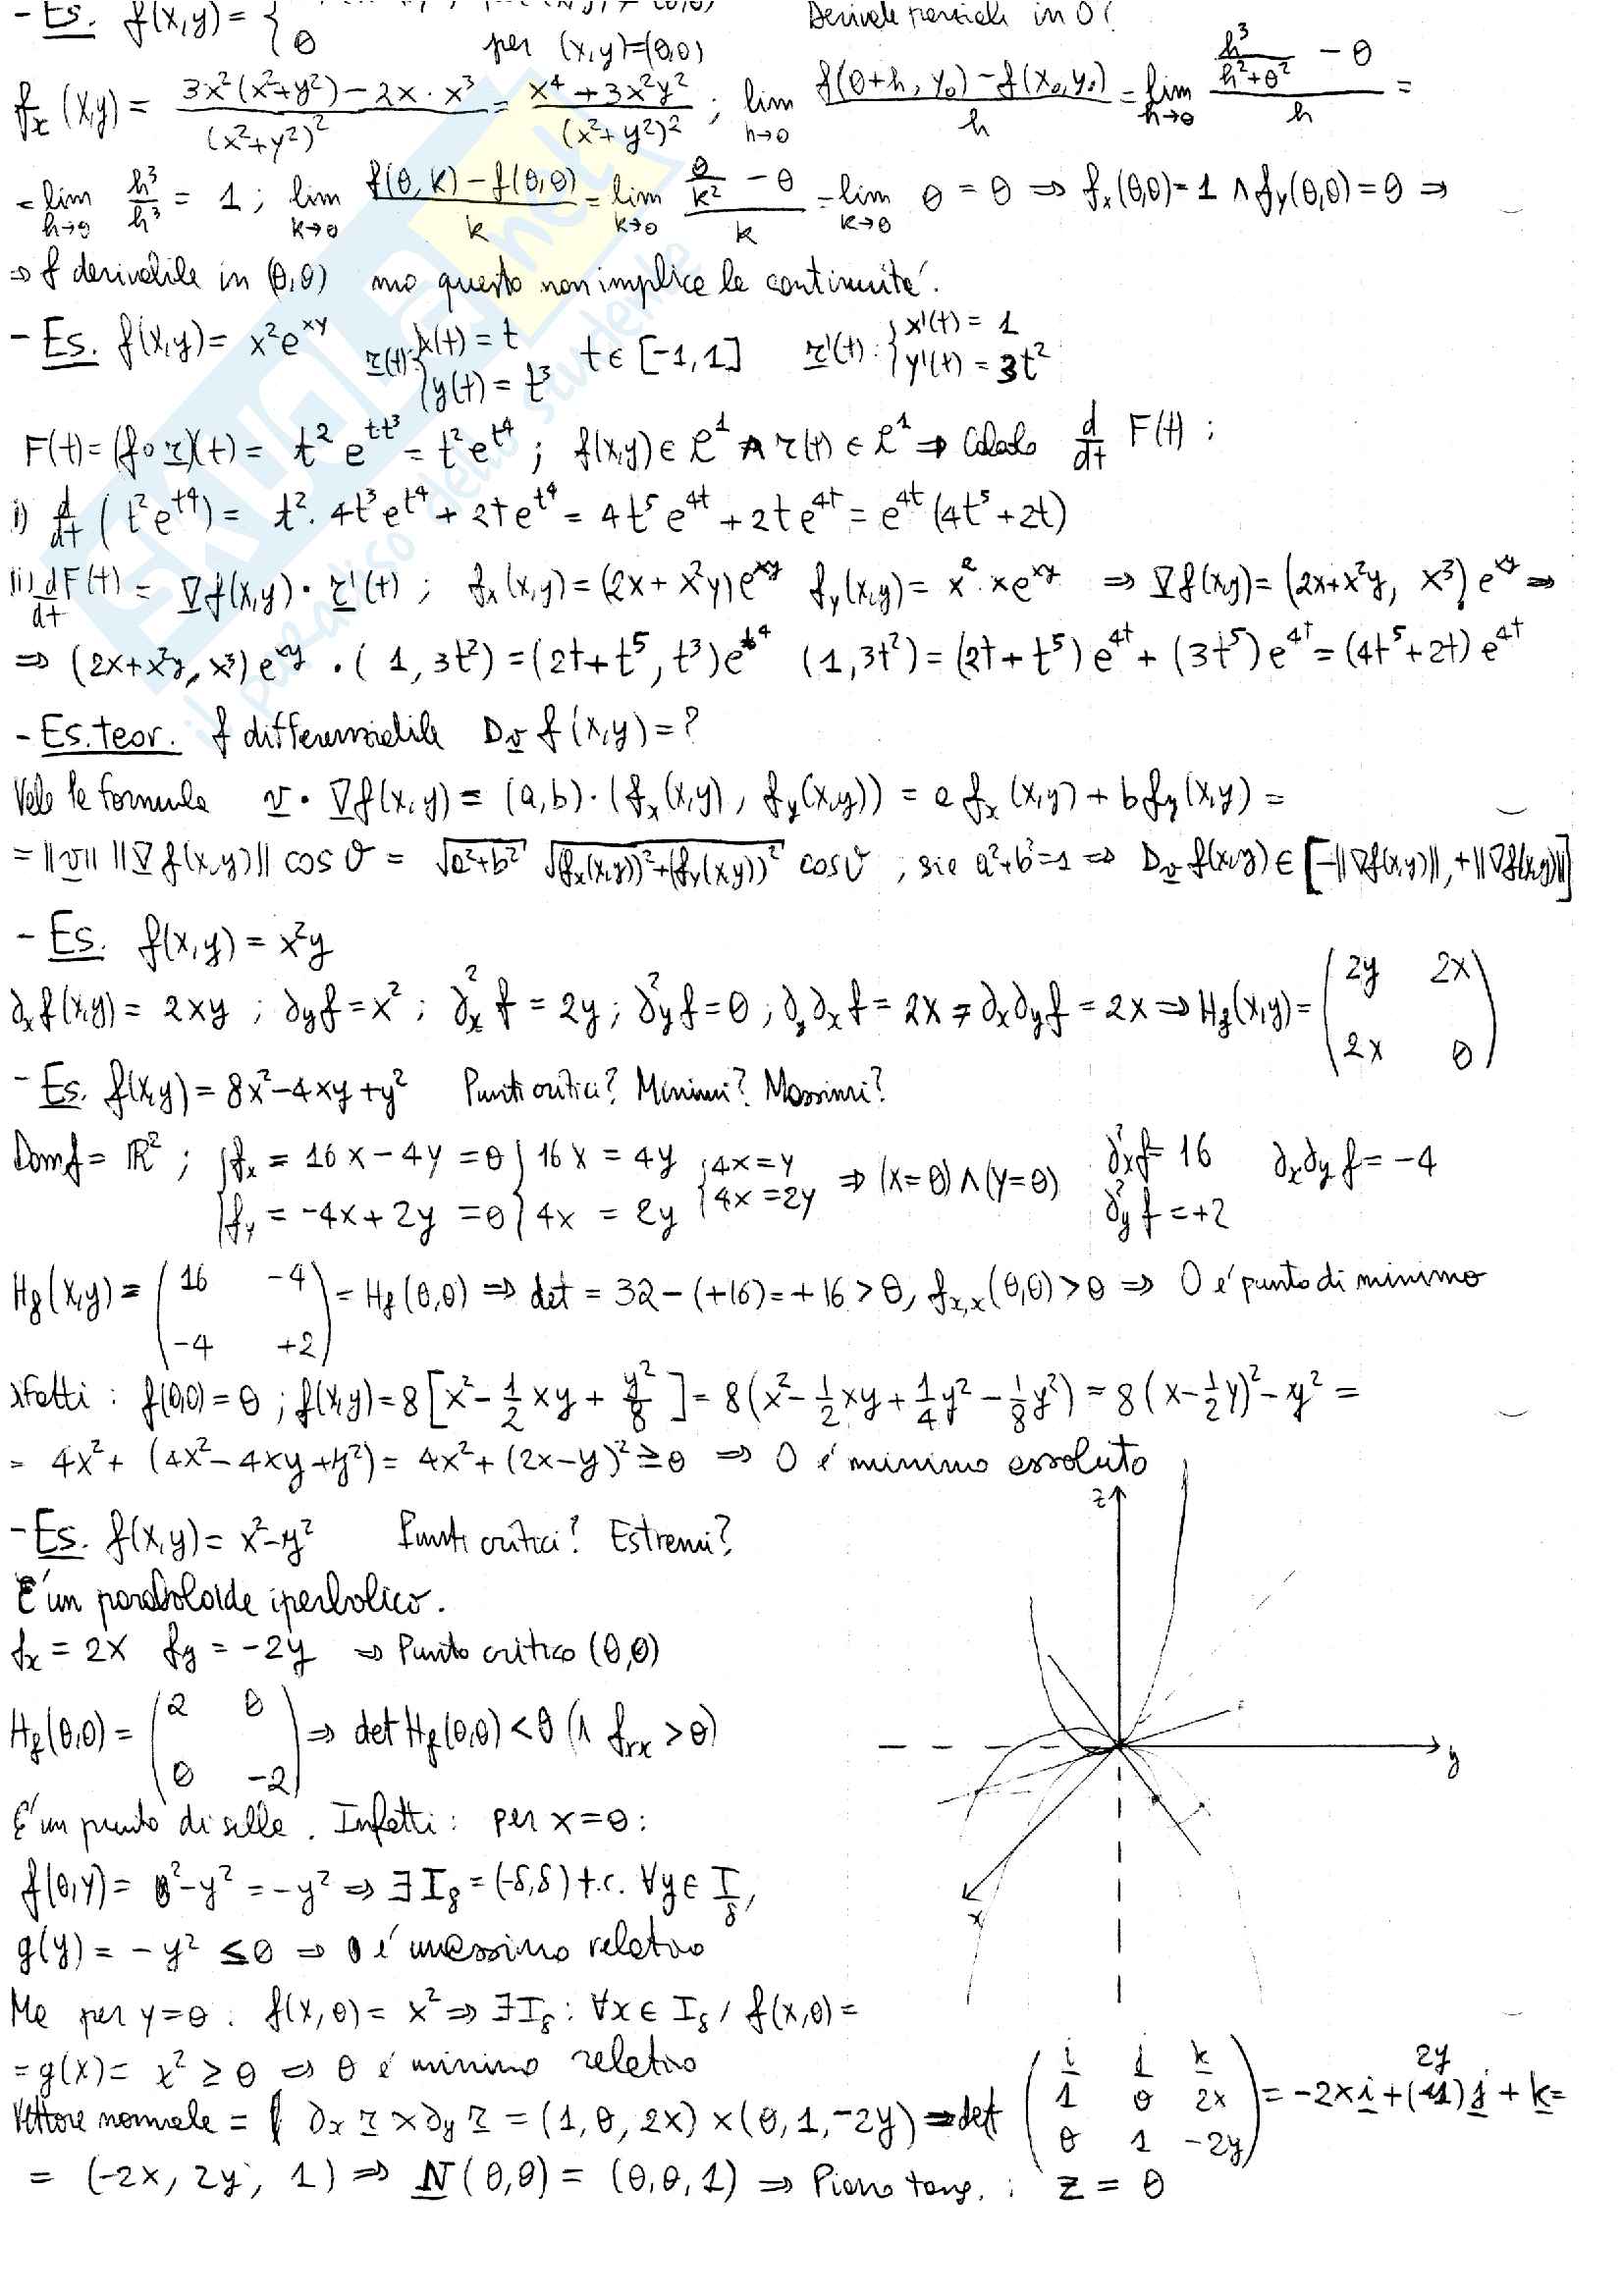 - Es. f(x,y) = { 0 per (x,y)=(0,0) Derivate parziali in 0?
f_x (x,y) = \frac{3x²(x²+y²)-2x·x³}{(x²+y²)²} = \frac{x⁴+3x²y²}{(x²+y²)²} ; lim_{h→0} \frac{f(0+h, y₀)-f(x₀,y₀)}{h} = lim_{h→0} \frac{\frac{h³}{h²+0²} - 0}{h} =
= lim_{h→0} \frac{h³}{h³} = 1 ; lim_{k→0} \frac{f(0,k)-f(0,0)}{k} = lim_{k→0} \frac{\frac{0}{k²} - 0}{k} = lim_{k→0} 0 = 0 ⇒ f_x(0,0)=1 ∧ f_y(0,0)=0 ⇒
⇒ f derivabile in (0,0) ma questo non implica la continuità.
- Es. f(x,y) = x²e^{xy} r(t): { x(t) = t y(t) = t³ t ∈ [-1,1] r'(t): { x'(t) = 1 y'(t) = 3t²
F(t) = (f∘r)(t) = t² e^{tt³} = t²e^{t⁴} ; f(x,y) ∈ C¹ ∧ r(t) ∈ C¹ ⇒ Calcolo \frac{d}{dt} F(t) :
i) \frac{d}{dt} (t²e^{t4}) = t²·4t³e^{t⁴} + 2te^{t⁴} = 4t⁵e^{4t} + 2te^{4t} = e^{4t}(4t⁵+2t)
ii) \frac{d}{dt}F(t) = ∇f(x,y)·r'(t) ; f_x(x,y) = (2x+x²y)e^{xy} f_y(x,y) = x²·xe^{xy} ⇒ ∇f(x,y) = (2x+x²y, x³) e^{xy} ⇒
⇒ (2x+x²y, x³)e^{xy}·(1,3t²) = (2t+t⁵, t³)e^{t⁴} (1,3t²) = (2t+t⁵)e^{4t} + (3t⁵)e^{4t} = (4t⁵+2t)e^{4t}
- Es. teor. f differenziabile D_v f(x,y) = ?
Vale la formula v·∇f(x,y) = (a,b)·(f_x(x,y), f_y(x,y)) = a f_x(x,y) + b f_y(x,y) =
= ||v|| ||∇f(x,y)|| cos ϑ = √(a²+b²) √((f_x(x,y))²+(f_y(x,y))²) cos ϑ ; sia a²+b²=1 ⇒ D_v f(x,y) ∈ [-||∇f(x,y)||, +||∇f(x,y)||]
- Es. f(x,y) = x²y
∂_x f(x,y) = 2xy ; ∂_y f = x² ; ∂²_x f = 2y ; ∂²_y f = 0 ; ∂_y∂_x f = 2x = ∂_x∂_y f = 2x ⇒ H_f(x,y) = ( 2y 2x
2x 0 )
- Es. f(x,y) = 8x²-4xy+y² Punti critici? Minimi? Massimi?
Dom f = ℝ² ; { f_x = 16x-4y = 0 { 16x = 4y { 4x=y ⇒ (x=0)∧(y=0) ∂²_x f = 16 ∂_x∂_y f = -4
f_y = -4x+2y = 0 4x = 2y 4x=2y ∂²_y f = +2
H_f(x,y) = ( 16 -4 ) = H_f(0,0) ⇒ det = 32-(+16) = +16 > 0, f_{x,x}(0,0) > 0 ⇒ 0 è punto di minimo
-4 +2
Infatti : f(0,0) = 0 ; f(x,y) = 8[x² - ½xy + \frac{y²}{8}] = 8(x² - ½xy + ¼y² - ⅛y²) = 8(x-½y)² - y² =
= 4x² + (4x²-4xy+y²) = 4x² + (2x-y)² ≥ 0 ⇒ 0 è minimo assoluto
- Es. f(x,y) = x²-y² Punti critici? Estremi?
z
È un paraboloide iperbolico.
f_x = 2x f_y = -2y ⇒ Punto critico (0,0)
H_f(0,0) = ( 2 0
0 -2 ) ⇒ det H_f(0,0) < 0 (∧ f_xx > 0)
y
È un punto di sella. Infatti : per x=0 :
f(0,y) = 0²-y² = -y² ⇒ ∃ I_δ = (-δ,δ) t.c. ∀y ∈ I_δ,
x
g(y) = -y² ≤ 0 ⇒ 0 è massimo relativo
Ma per y=0 : f(x,0) = x² ⇒ ∃I_δ : ∀x ∈ I_δ, f(x,0) =
= g(x) = x² ≥ 0 ⇒ 0 è minimo relativo
Vettore normale = ∂_x r × ∂_y r = (1,0,2x)×(0,1,-2y) ⇒ det ( i j k
1 0 2x
0 1 -2y ) = -2x i + (2y) j + k =
= (-2x, 2y, 1) ⇒ N(0,0) = (0,0,1) ⇒ Piano tang. : z = 0